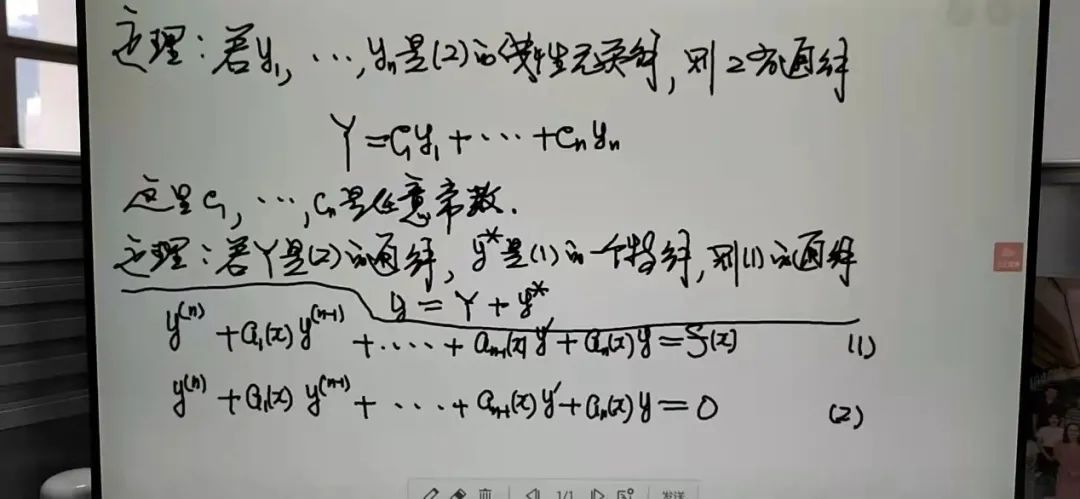 定理：若y₁, …, yₙ是(2)的线性无关解，则2的通解
Y=C₁y₁+⋯+Cₙyₙ
这里C₁, …, Cₙ是任意常数.
定理：若Y是(2)的通解，y*是(1)的一个特解，则(1)的通解
y = Y + y*
y⁽ⁿ⁾+a₁(x)y⁽ⁿ⁻¹⁾+⋯⋯+aₙ₋₁(x)y′+aₙ(x)y=f(x) (1)
y⁽ⁿ⁾+a₁(x)y⁽ⁿ⁻¹⁾+⋯+aₙ₋₁(x)y′+aₙ(x)y=0 (2)
1/1 发送